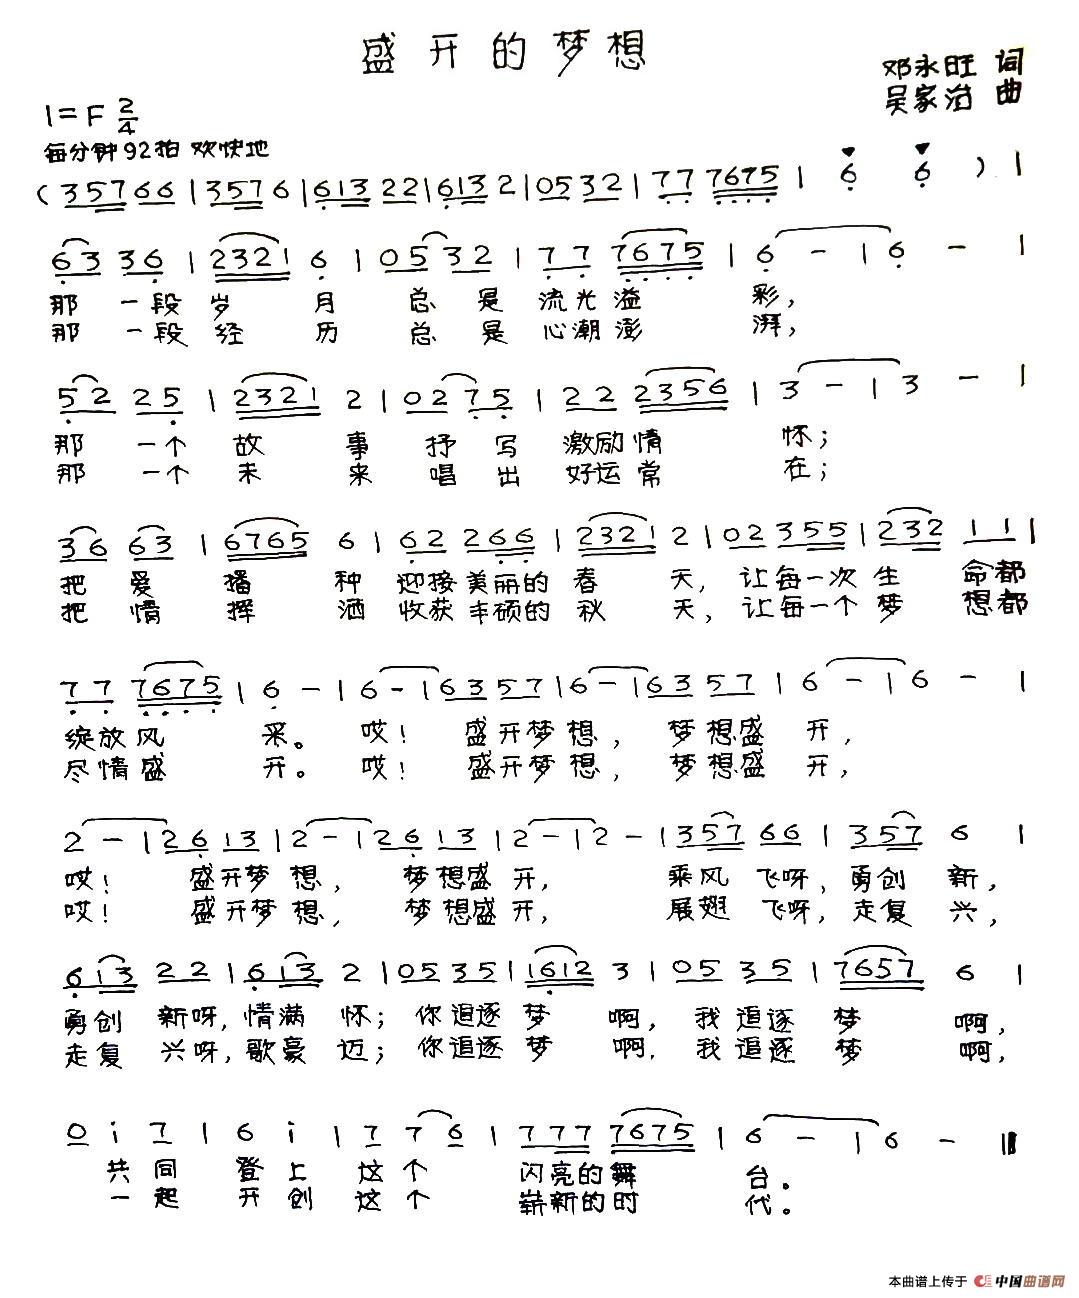 盛开的梦想
邓永旺 词
吴家治 曲
1=F 2/4
每分钟92拍 欢快地
(35766|3576|61322|6132|0532|777675|6 6)|
6336|23216|0532|777675|6-|6-|
那一段岁月总是流光溢彩,
那一段经历总是心潮澎湃,
5225|23212|0275|222356|3-|3-|
那一个故事抒写激励情怀;
那一个未来唱出好运常在;
3663|67656|62266|23212|02355|23211|
把爱播种迎接美丽的春天,让每一次生命都
把情挥洒收获丰硕的秋天,让每一个梦想都
777675|6-|6-|6357|6-|6357|6-|6-|
绽放风采。哎!盛开梦想,梦想盛开,
尽情盛开。哎!盛开梦想,梦想盛开,
2-|2613|2-|2613|2-|2-|35766|3576|
哎!盛开梦想,梦想盛开,乘风飞呀,勇创新,
哎!盛开梦想,梦想盛开,展翅飞呀,走复兴,
61322|6132|0535|16123|0535|76576|
勇创新呀,情满怀;你追逐梦啊,我追逐梦啊,
走复兴呀,歌豪迈;你追逐梦啊,我追逐梦啊,
0i7|6i|776|7777675|6-|6-‖
共同登上这个闪亮的舞台。
一起开创这个崭新的时代。
本曲谱上传于 中国曲谱网